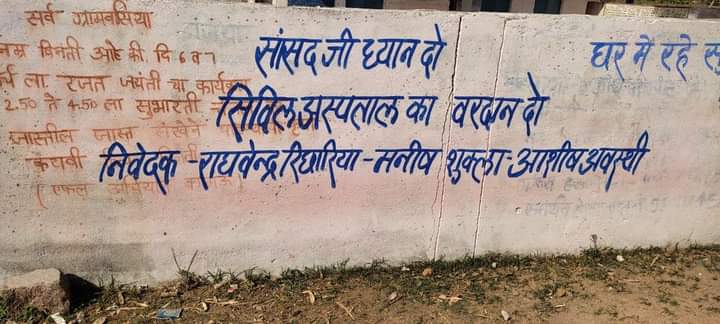 सर्व ग्रामवासिया
नम्र विनती ओह की. दि 6 व 7
ला रजत जयंती चा कार्यक्रम
2.50 ते 4.50 ला सुभारती
जास्तील जास्त संख्येने
सांसद जी ध्यान दो
सिविल अस्पताल का वरदान दो
निवेदक - राघवेन्द्र रिछारिया - मनीष शुक्ला - आशीष अवस्थी
घर में रहे